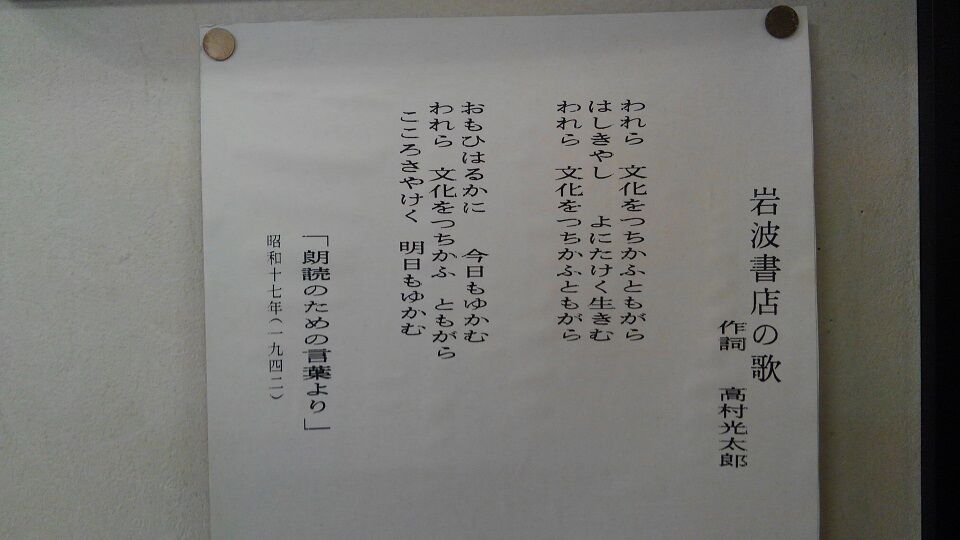 岩波書店の歌
作詞 高村光太郎
われら 文化をつちかふともがら
はしきやし よにたけく生きむ
われら 文化をつちかふともがら
おもひはるかに 今日もゆかむ
われら 文化をつちかふ ともがら
こころさやけく 明日もゆかむ
「朗読のための言葉より」
昭和十七年(一九四二)